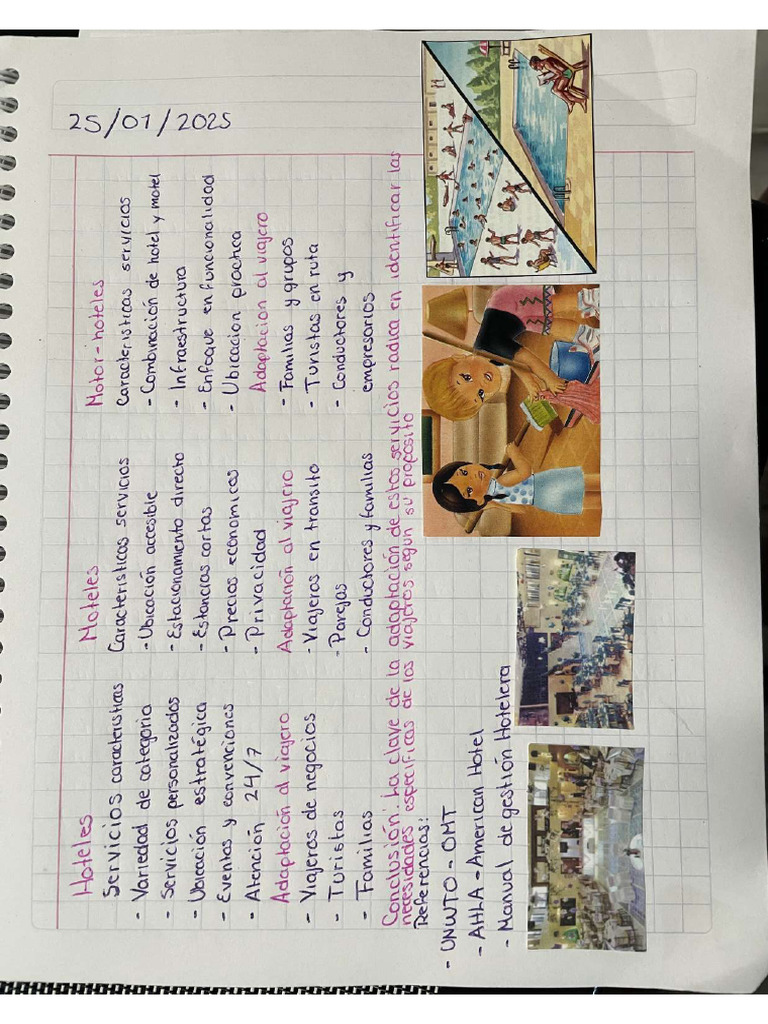 25/01/2025
Hoteles
Servicios caracteristicas
- Variedad de categoria
- Servicios personalizados
- Ubicación estratégica
- Eventos y convenciones
- Atención 24/7
Adaptación al viajero
- Viajeros de negocios
- Turistas
- Familias
Moteles
Caracteristicas servicios
- Ubicación accesible
- Estacionamiento directo
- Estancias cortas
- Precios economicos
- Privacidad
Adaptación al viajero
- Viajeros en transito
- Parejas
- Conductores y familias
Motor-hoteles
Caracteristicas servicios
- Combinación de hotel y motel
- Infraestructura
- Enfoque en funcionalidad
- Ubicacion practica
Adaptacion al viajero
- Familias y grupos
- Turistas en ruta
- Conductores y
empresarios
Conclusión: La clave de la adaptación de estos servicios radica en identificar las
necesidades especificas de los viajeros según su proposito
Referencias:
- UNWTO - OMT
- AHLA - American Hotel
- Manual de gestión Hotelera